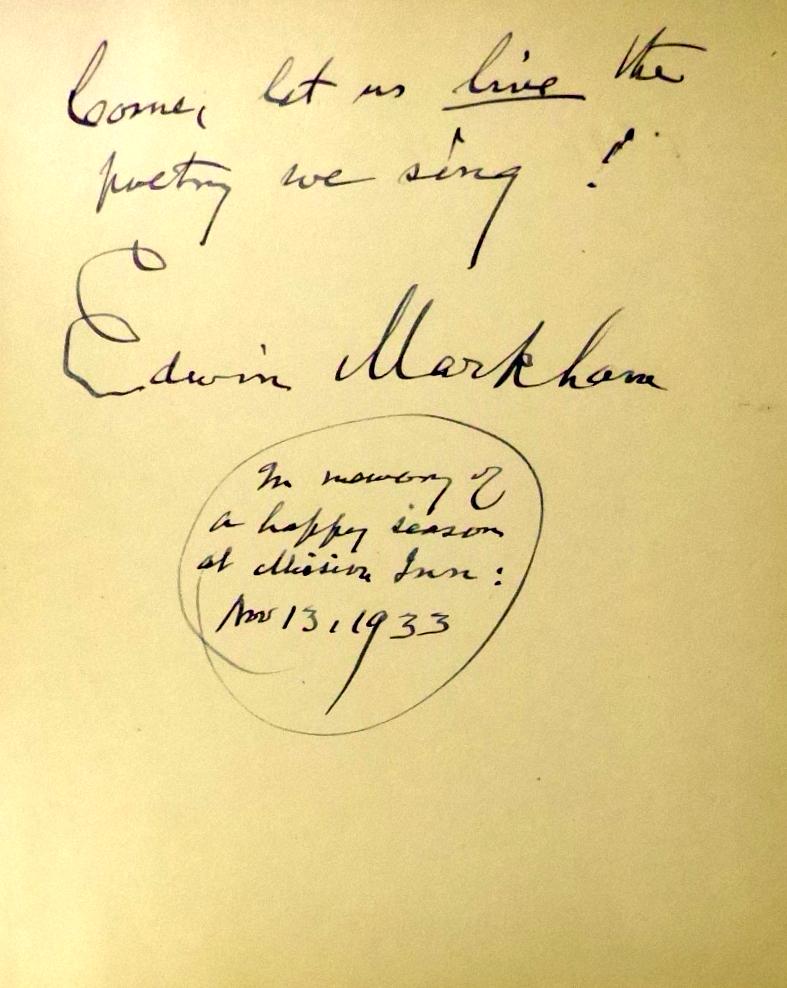 Come, let us live the
poetry we sing!
Edwin Markham
In memory of
a happy season
at Mission Inn:
Nov 13, 1933